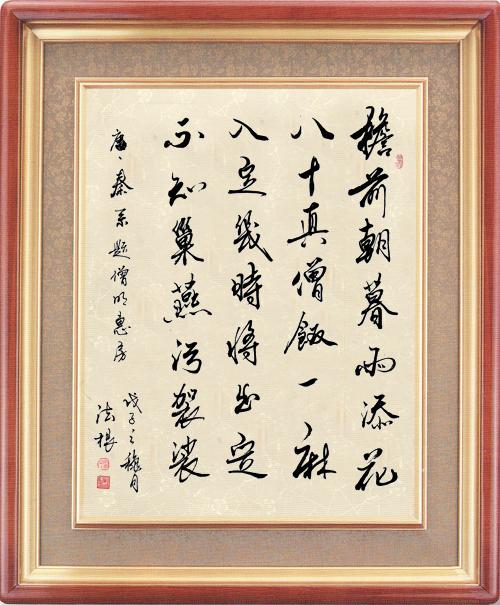 檐前朝暮雨添花
八十真僧飯一麻
入定幾時將出定
不知巢燕污袈裟
唐、秦系題僧明惠房
戊子之穐月
法根